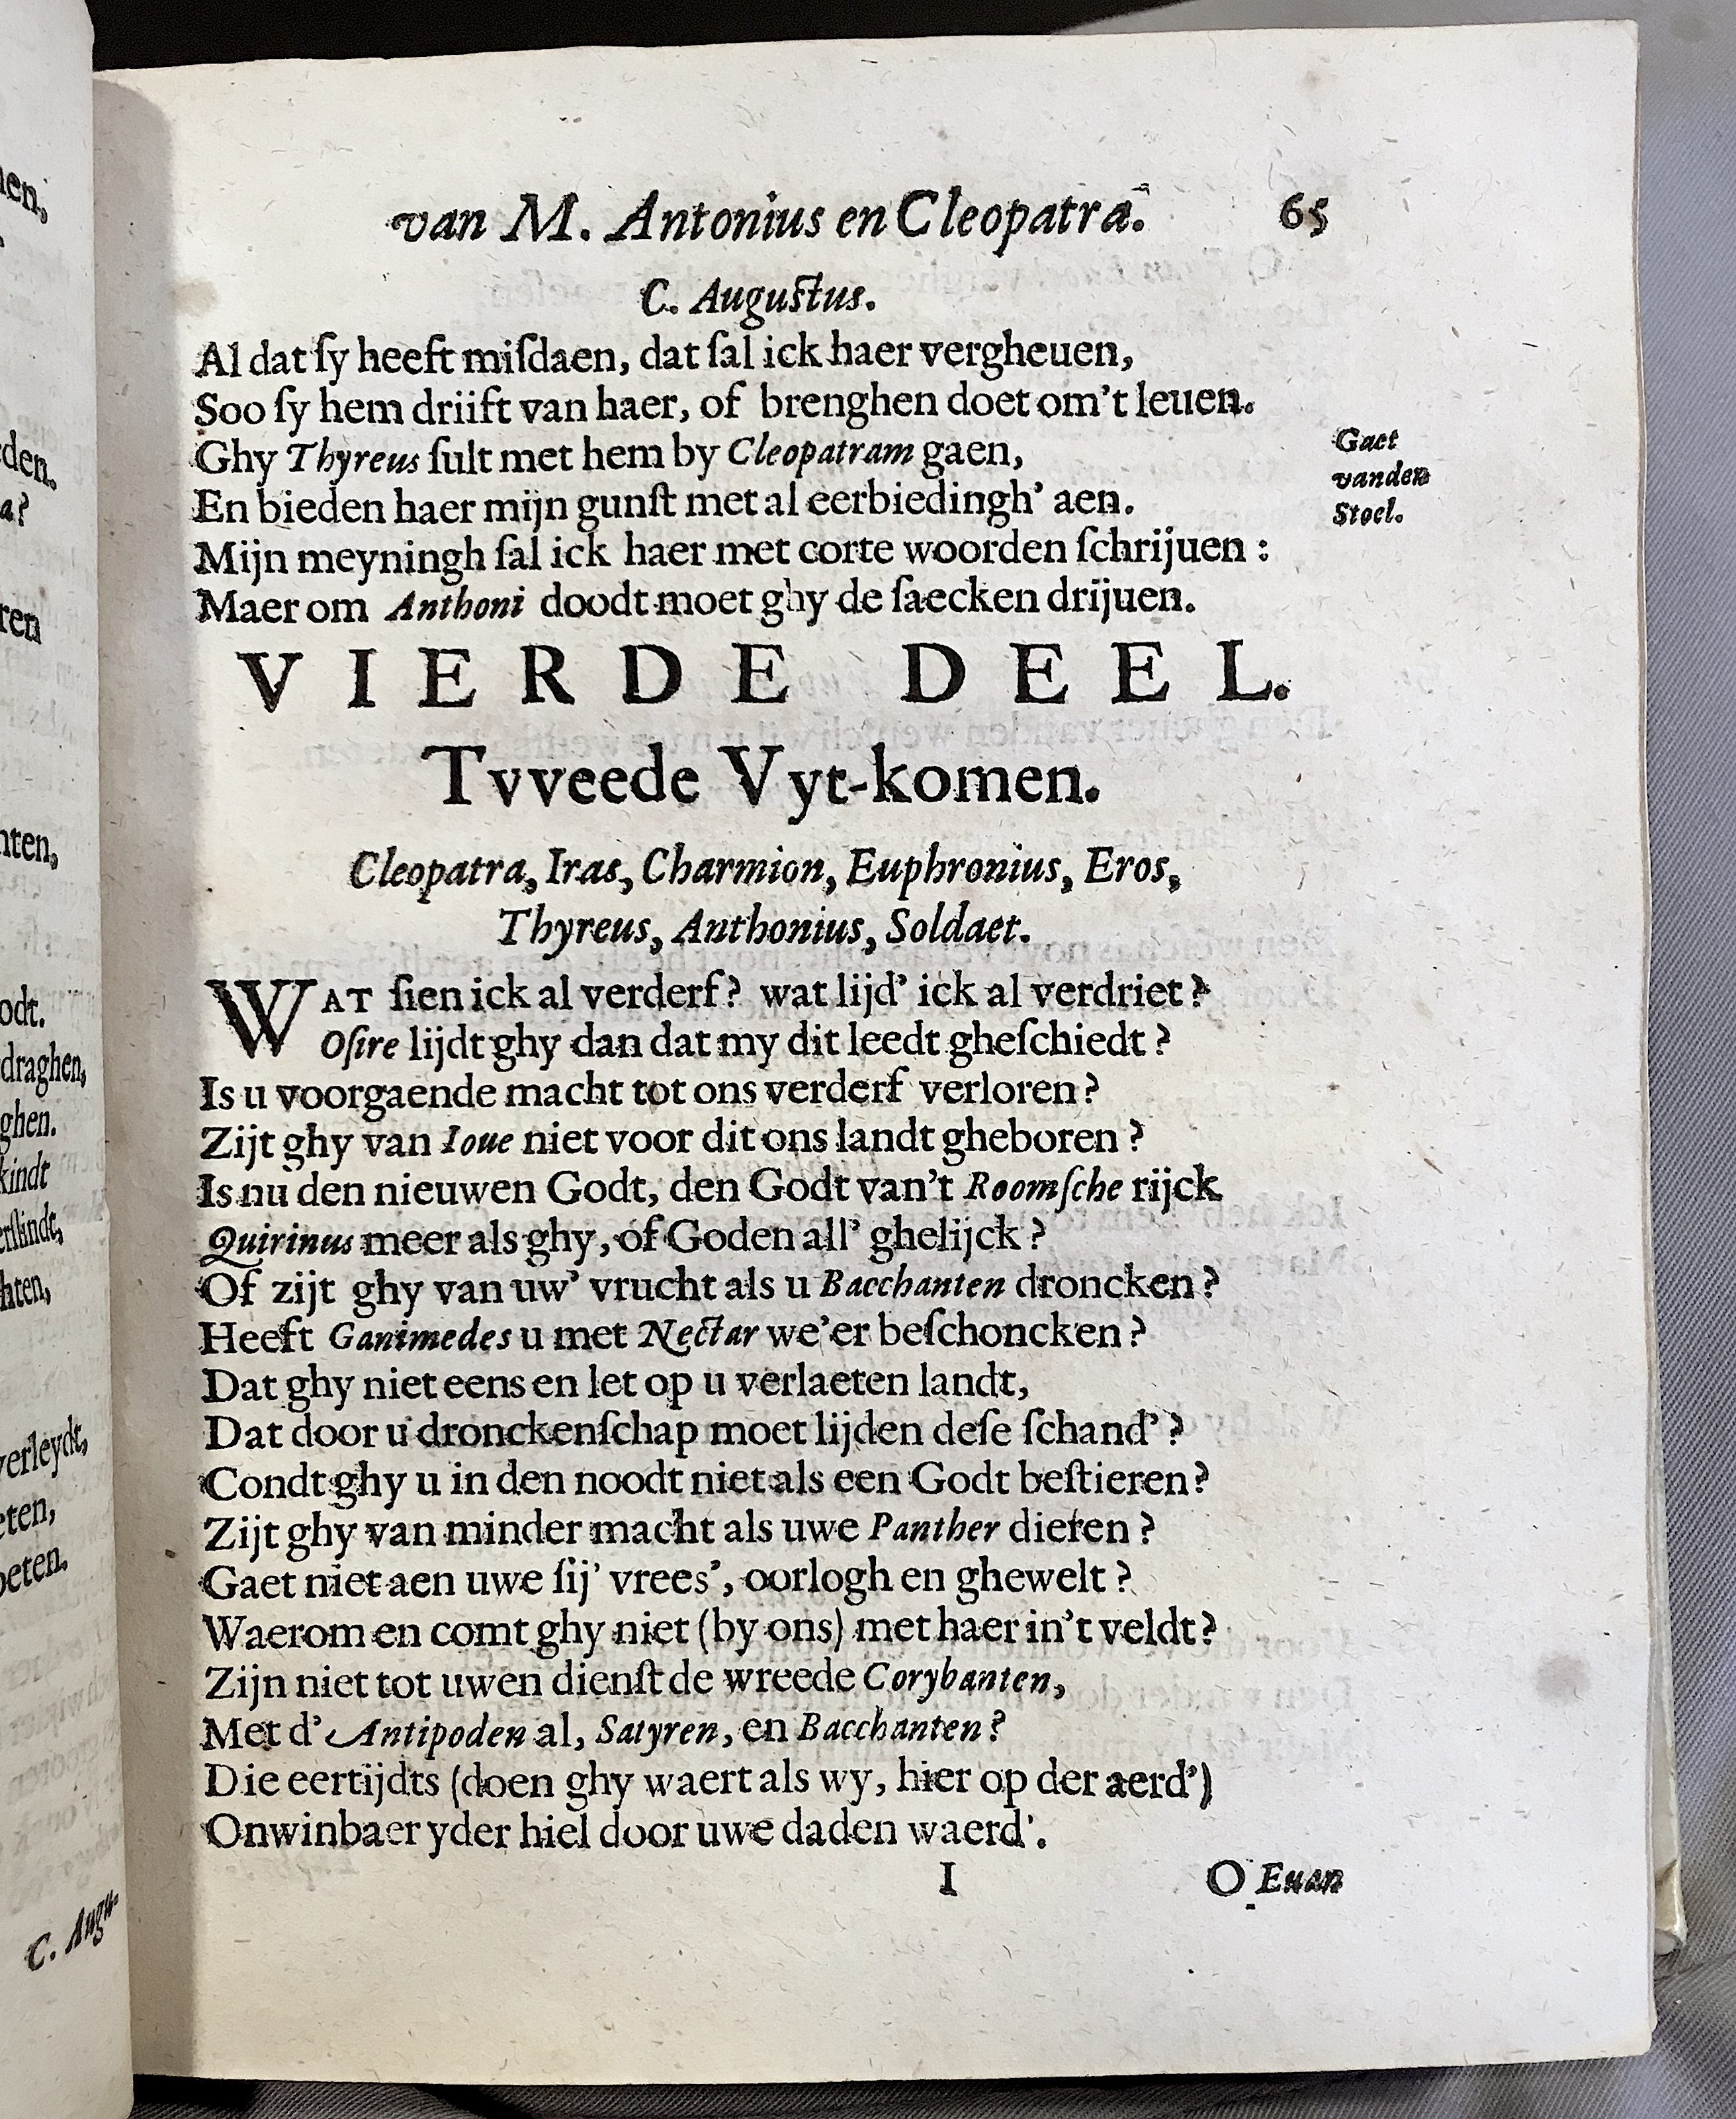 van M. Antonius en Cleopatra. 65
C. Auguſtus.
Al dat ſy heeft miſdaen, dat ſal ick haer vergheuen,
Soo ſy hem driift van haer, of brenghen doet om't leuen.
Ghy Thyreus ſult met hem by Cleopatram gaen,
En bieden haer mijn gunſt met al eerbiedingh' aen.
Gaet
vanden
Stoel.
Mijn meyningh ſal ick haer met corte woorden ſchrijuen :
Maer om Anthoni doodt moet ghy de ſaecken drijuen.
VIERDE DEEL.
Tvveede Vyt-komen.
Cleopatra, Iras, Charmion, Euphronius, Eros,
Thyreus, Anthonius, Soldaet.
WAT ſien ick al verderf? wat lijd' ick al verdriet?
Oſire lijdt ghy dan dat my dit leedt gheſchiedt?
Is u voorgaende macht tot ons verderf verloren?
Zijt ghy van Ioue niet voor dit ons landt gheboren?
Is nu den nieuwen Godt, den Godt van't Roomſche rijck
Quirinus meer als ghy, of Goden all' ghelijck?
Of zijt ghy van uw' vrucht als u Bacchanten droncken?
Heeft Ganimedes u met Nectar we'er beſchoncken?
Dat ghy niet eens en let op u verlaeten landt,
Dat door u dronckenſchap moet lijden deſe ſchand'?
Condt ghy u in den noodt niet als een Godt beſtieren?
Zijt ghy van minder macht als uwe Panther dieren?
Gaet niet aen uwe ſij' vrees', oorlogh en ghewelt?
Waerom en comt ghy niet (by ons) met haer in't veldt?
Zijn niet tot uwen dienſt de wreede Corybanten,
Met d' Antipoden al, Satyren, en Bacchanten?
Die eertijdts (doen ghy waert als wy, hier op der aerd')
Onwinbaer yder hiel door uwe daden waerd'.
I O Euan
den.
a?
ren
odt.
draghen,
ghen.
kindt
verleydt,
C. Augu-